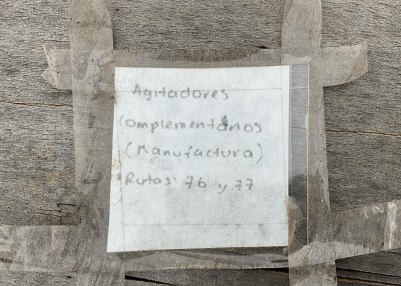 Agitadores
Complementarios
(Manufactura)
Rutas: 76 y 77